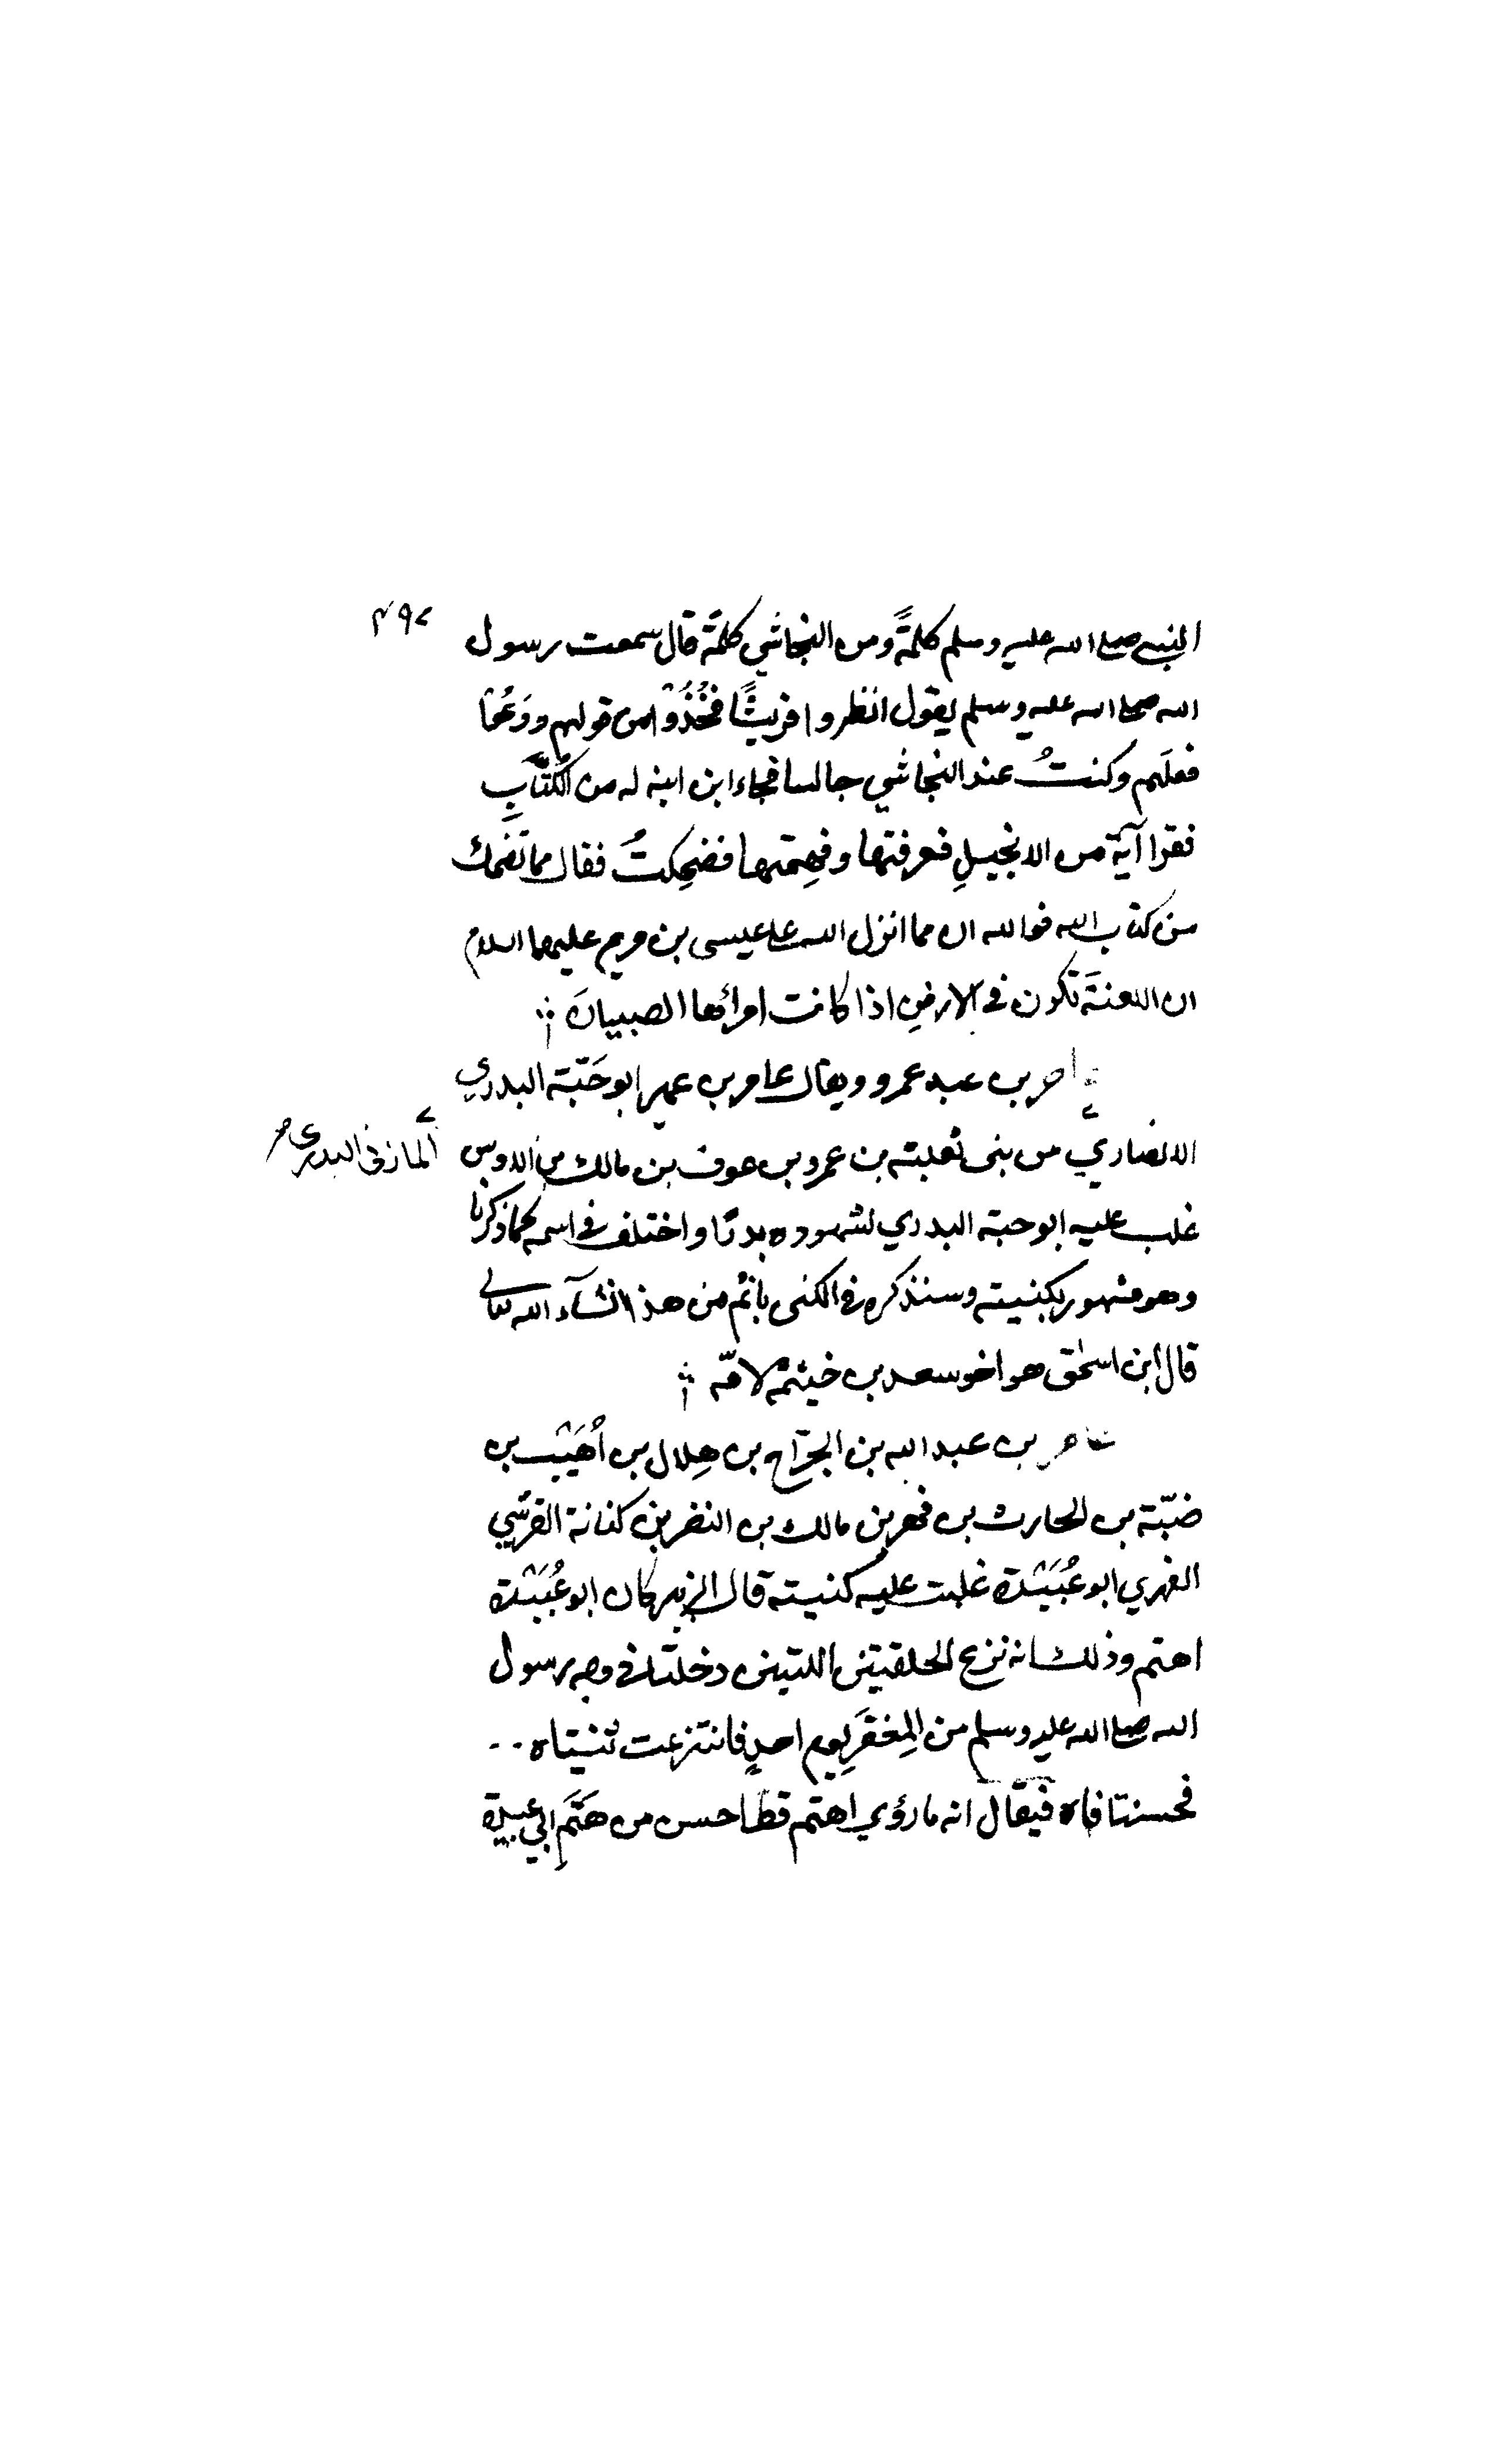 ٣٩٢
النبي صلى الله عليه وسلم كلمةً ومن النجاشي كلمة قال سمعت رسول
الله صلى الله عليه وسلم يقول انظروا قريشًا فخُذُوْا من قولهم ودَعُوْا
فعلَهم وكنتُ عند النجاشي جالسا فجاء ابن ابنه له من الكُتَّابِ
فقرا آية من الانجيلِ فعرفتها وفهِمتها فضحِكتُ فقال مما تضحك
من كتاب الله فوالله ان مما انزل الله على عيسى بن مريم عليهما السلام
ان اللعنةَ تكون في الارضِ اذا كانت امرائها الصبيانَ
عامر بن عبد عمرو ويقال عامر بن عمير ابو حَبّة البدري
الانصاري من بنى ثعلبة بن عمرو بن عوف بن مالك بن الاوس
المازنى البدرى
غلب عليه ابو حبة البدري لشهوده بدرًا واختلف في اسمه كما ذكرنا
وهو مشهور بكنيته وسنذكره في الكنى باتم من هذا انشآء الله تعالى
قال ابن اسحٰق هو اخو سعد بن خيثمة لامّه
عامر بن عبد الله بن الجرّاح بن هِلال بن اُهَيْب بن
ضبّة بن الحارث بن فهر بن مالك بن النضر بن كنانة القرشي
الفهري ابو عُبَيْدة غلبت عليه كنيته قال الزبير كان ابو عُبَيْدة
اهتم وذلك انه نزع الحلقتين اللتين دخلتا في وجه رسول
الله صلى الله عليه وسلم من المِغفَرِ يوم احدٍ فانتزعت ثنيتاه
فحسنتا فاه فيقال انه ما رؤي اهتم قط احسن من هَتَمِ ابي عبيدة